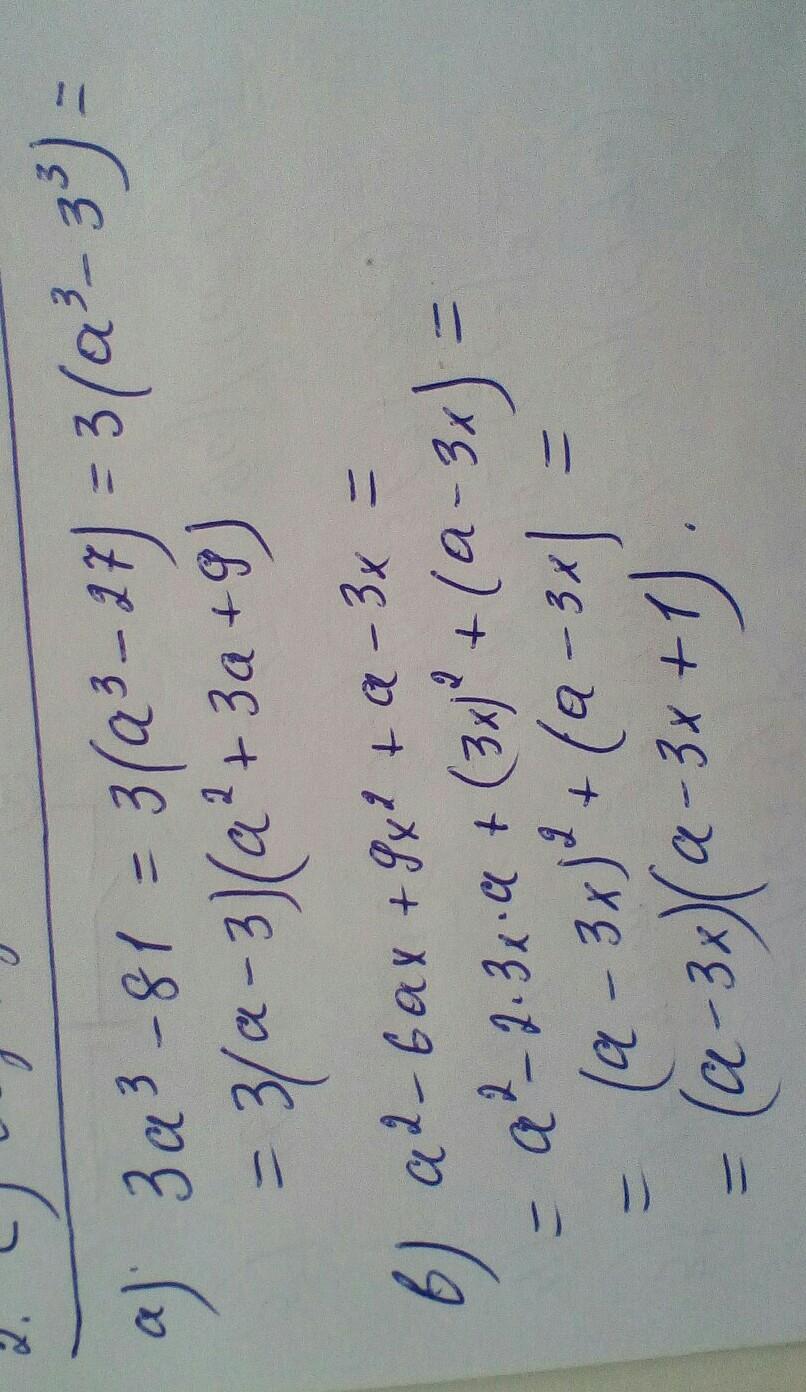 2.
a) 3a³ - 81 = 3(a³ - 27) = 3(a³ - 3³) =
= 3(a - 3)(a² + 3a + 9)
в) a² - 6ax + 9x² + a - 3x =
= a² - 2·3x·a + (3x)² + (a - 3x) =
= (a - 3x)² + (a - 3x) =
= (a - 3x)(a - 3x + 1).